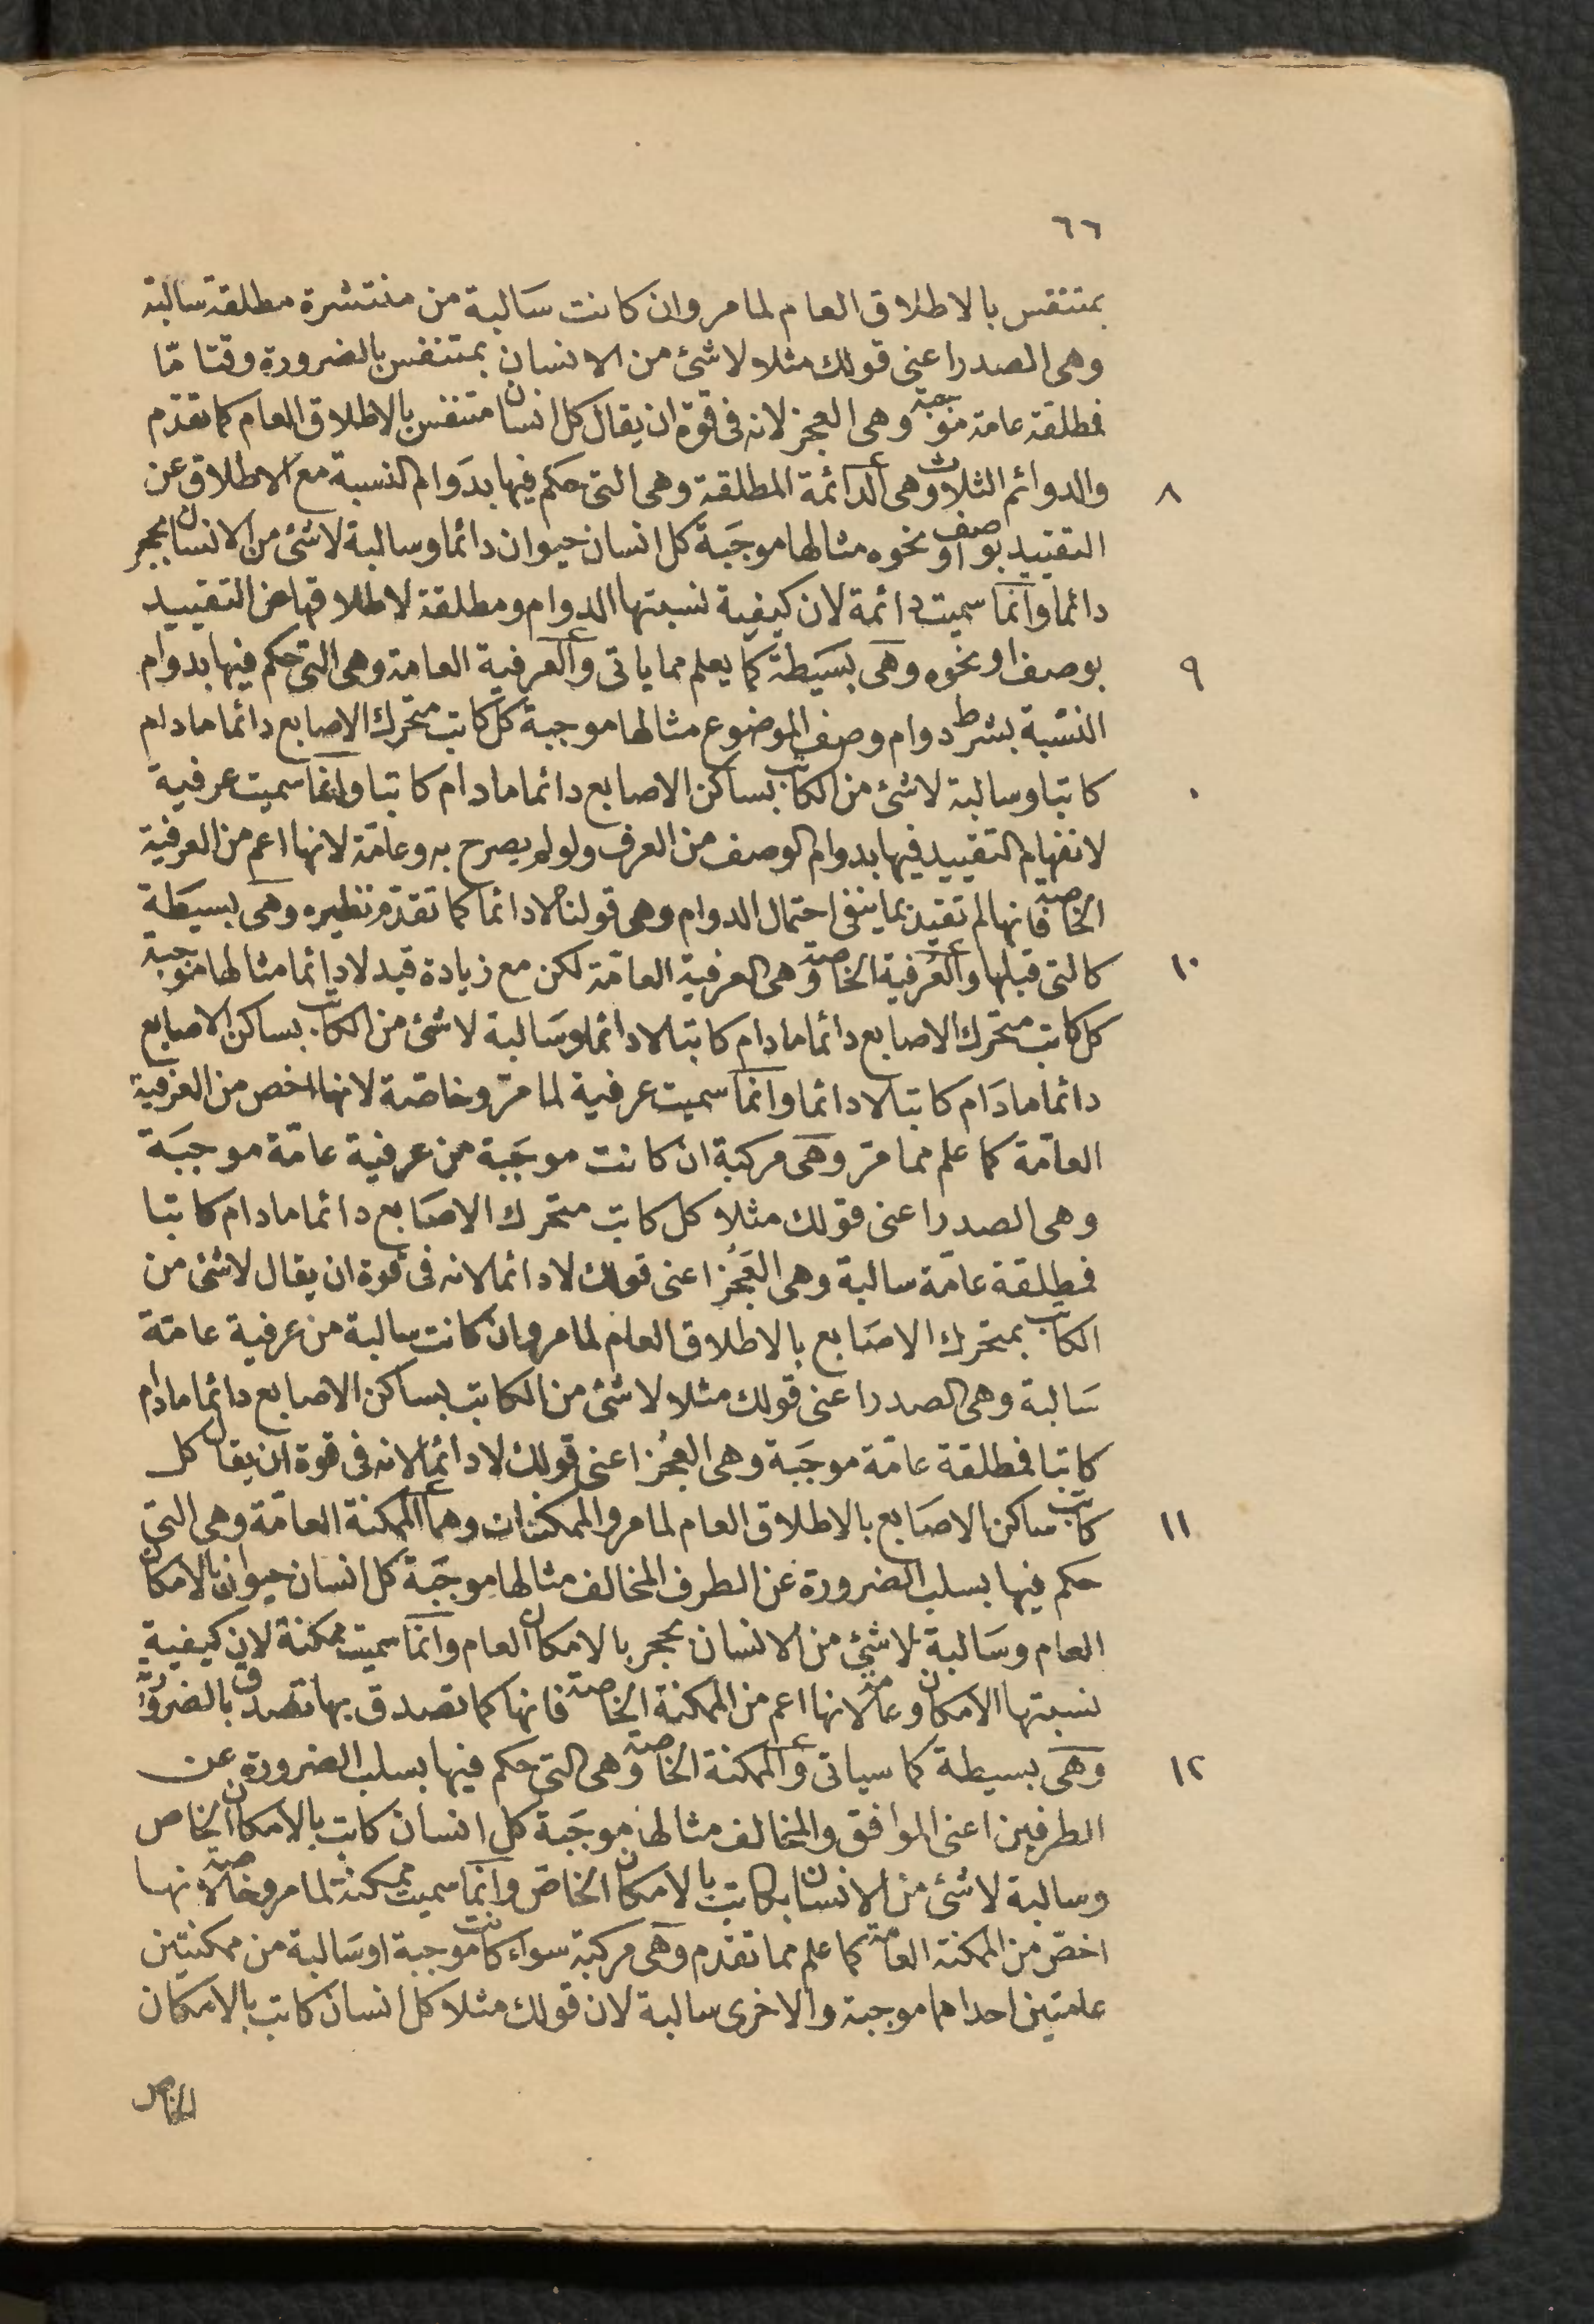 ٦٦
بمتنفس بالاطلاق العام لما مر وان كانت سالبة من منتشرة مطلقة سالبة
وهى الصدر اعنى قولك مثلا لا شئ من الانسان بمتنفس بالضرورة وقتا مّا
فمطلقة عامة موجبة وهى العجز لانه فى قوة ان يقال كل انسان متنفس بالاطلاق العام كما تقدم
٨ والدوائم الثلاث وهى الدائمة المطلقة وهى التى حكم فيها بدوام النسبة مع الاطلاق عن
التقييد بوصف او نحوه مثالها موجبة كل انسان حيوان دائما وسالبة لا شئ من الانسان بحجر
دائما وانما سميت دائمة لان كيفية نسبتها الدوام ومطلقة لاطلاقها عن التقييد
٩ بوصف او نحوه وهى بسيطة كما يعلم مما ياتى والعرفية العامة وهى التى حكم فيها بدوام
النسبة بشرط دوام وصف الموضوع مثالها موجبة كل كاتب متحرك الاصابع دائما ما دام
كاتبا وسالبة لا شئ من الكاتب بساكن الاصابع دائما ما دام كاتبا وانما سميت عرفية
لانفهام التقييد فيها بدوام الوصف من العرف ولو لم يصرح به وعامّة لانها اعم من العرفية
الخاصة فانها لم تقيد بما ينفى احتمال الدوام وهى قولنا لا دائما كما تقدم نظيره وهى بسيطة
١٠ كالتى قبلها والعرفية الخاصة وهى العرفية العامّة لكن مع زيادة قيد لا دائما مثالها موجبة
كل كاتب متحرك الاصابع دائما ما دام كاتبا لا دائما وسالبة لا شئ من الكاتب بساكن الاصابع
دائما ما دام كاتبا لا دائما وانما سميت عرفية لما مرّ وخاصّة لانها اخص من العرفية
العامّة كما علم مما مرّ وهى مركبة ان كانت موجبة من عرفية عامّة موجبة
وهى الصدر اعنى قولك مثلا كل كاتب متحرك الاصابع دائما ما دام كاتبا
فمطلقة عامّة سالبة وهى العَجُز اعنى قولك لا دائما لانه فى قوة ان يقال لا شئ من
الكاتب بمتحرك الاصابع بالاطلاق العام لما مر وان كانت سالبة من عرفية عامّة
سالبة وهى الصدر اعنى قولك مثلا لا شئ من الكاتب بساكن الاصابع دائما ما دام
كاتبا فمطلقة عامّة موجبة وهى العجُز اعنى قولك لا دائما لانه فى قوة ان يقال كل
١١ كاتب ساكن الاصابع بالاطلاق العام لما مر والممكنتان وهما الممكنة العامّة وهى التى
حكم فيها بسلب الضرورة عن الطرف المخالف مثالها موجبة كل انسان حيوان بالامكان
العام وسالبة لا شئ من الانسان بحجر بالامكان العام وانما سميت ممكنة لان كيفية
نسبتها الامكان وعامة لانها اعم من الممكنة الخاصة فانها كما تصدق بها تصدق بالضرورة
١٢ وهى بسيطة كما سياتى والممكنة الخاصة وهى التى حكم فيها بسلب الضرورة عن
الطرفين اعنى الموافق والمخالف مثالها موجبة كل انسان كاتب بالامكان الخاص
وسالبة لا شئ من الانسان بكاتب بالامكان الخاص وانما سميت ممكنة لما مر وخاصة لانها
اخصّ من الممكنة العامة كما علم مما تقدم وهى مركبة سواء كانت موجبة او سالبة من ممكنتين
عامتين احداهما موجبة والاخرى سالبة لان قولك مثلا كل انسان كاتب بالامكان
الخاص